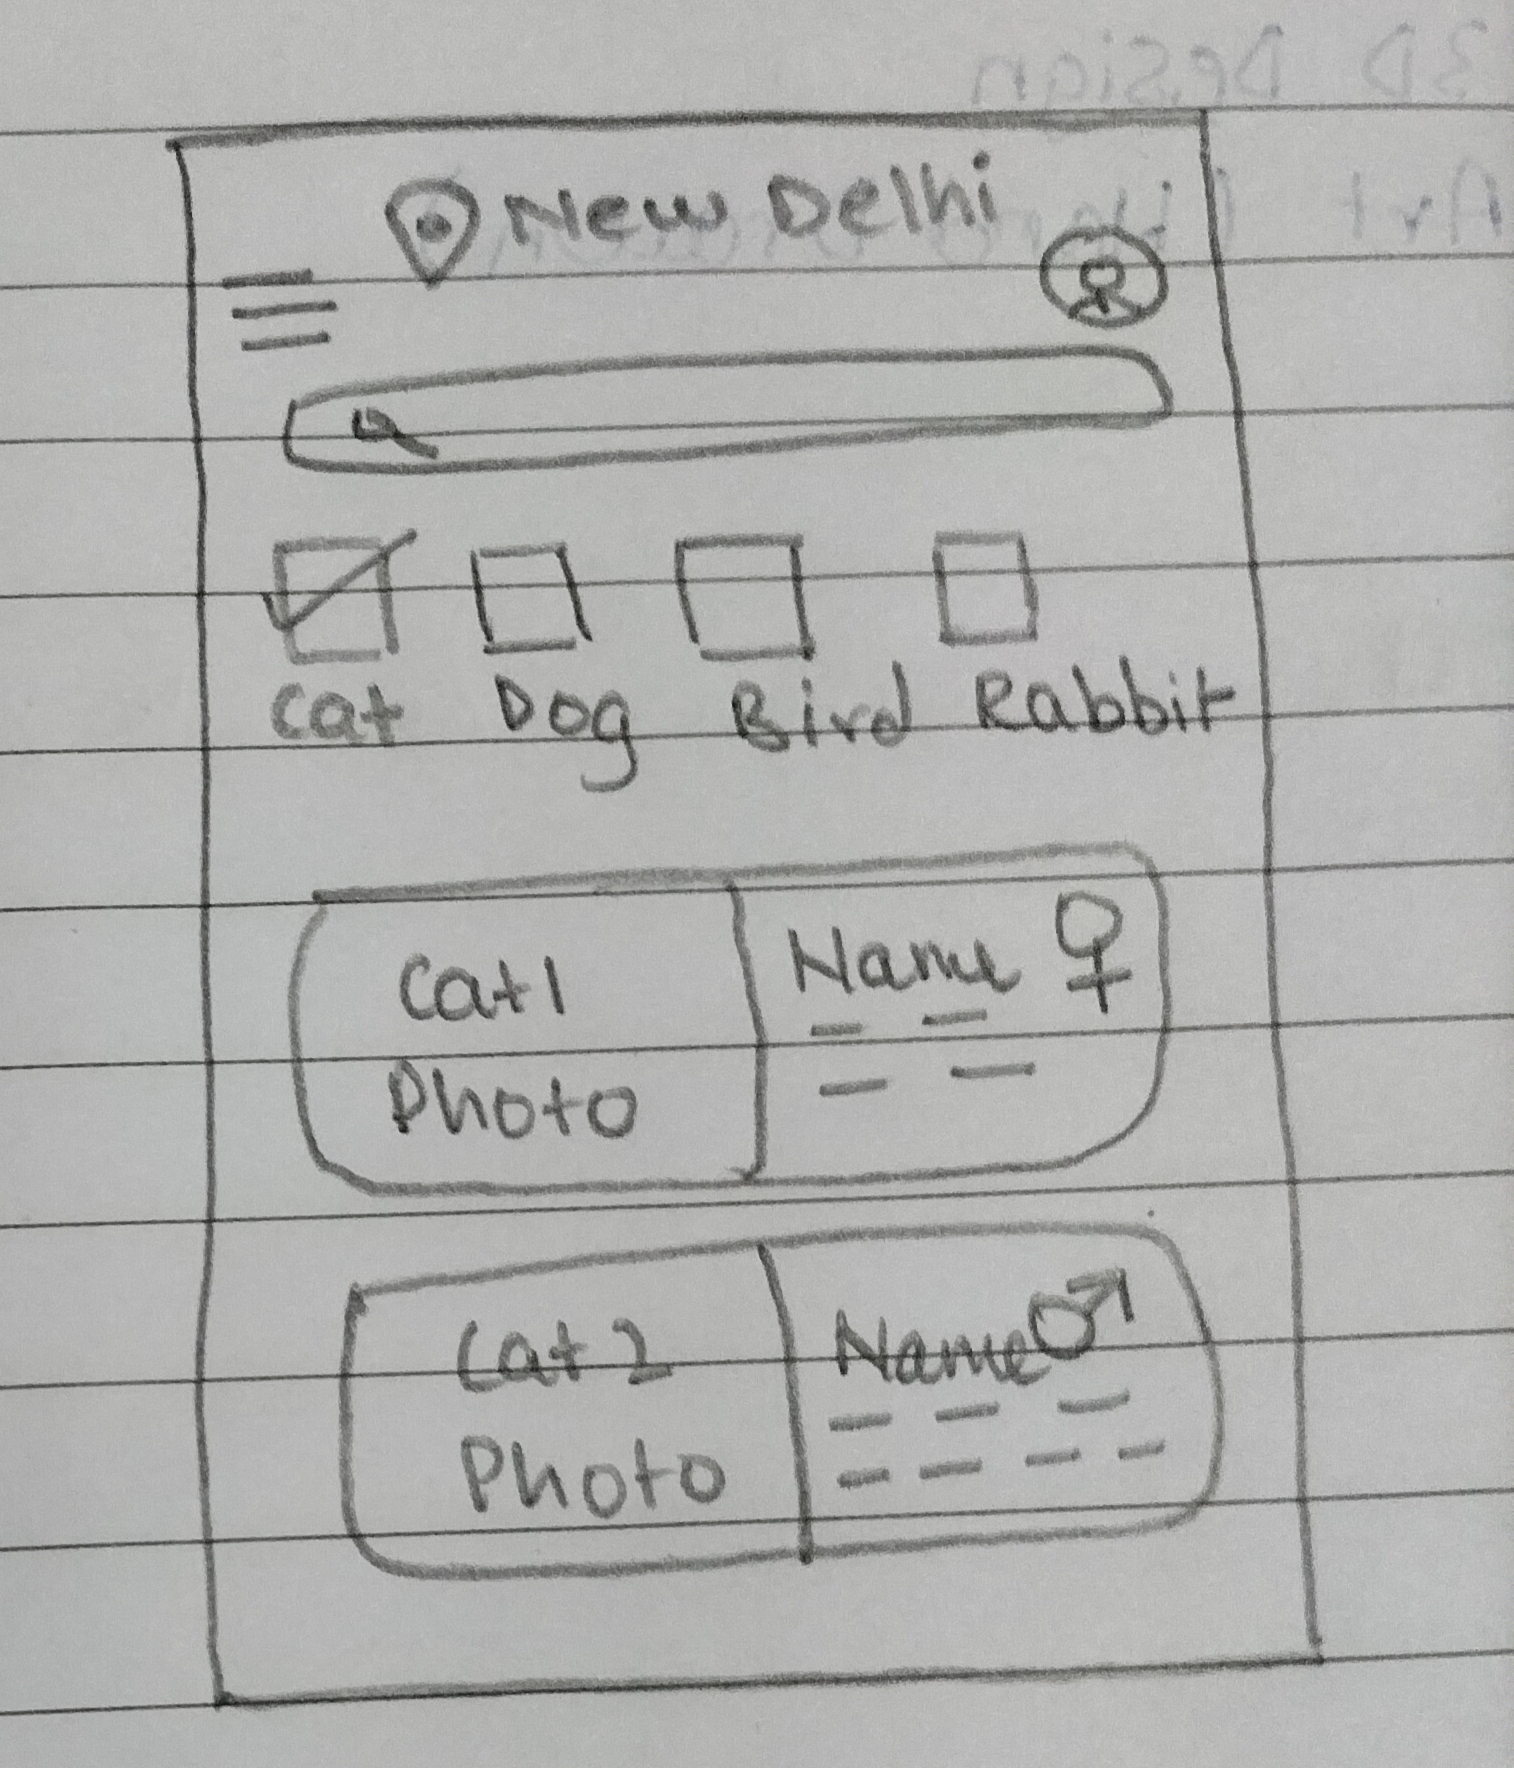 New Delhi
Cat Dog Bird Rabbit
Cat1
Photo
Name ♀
Cat 2
Photo
Name ♂
3D Design
Art